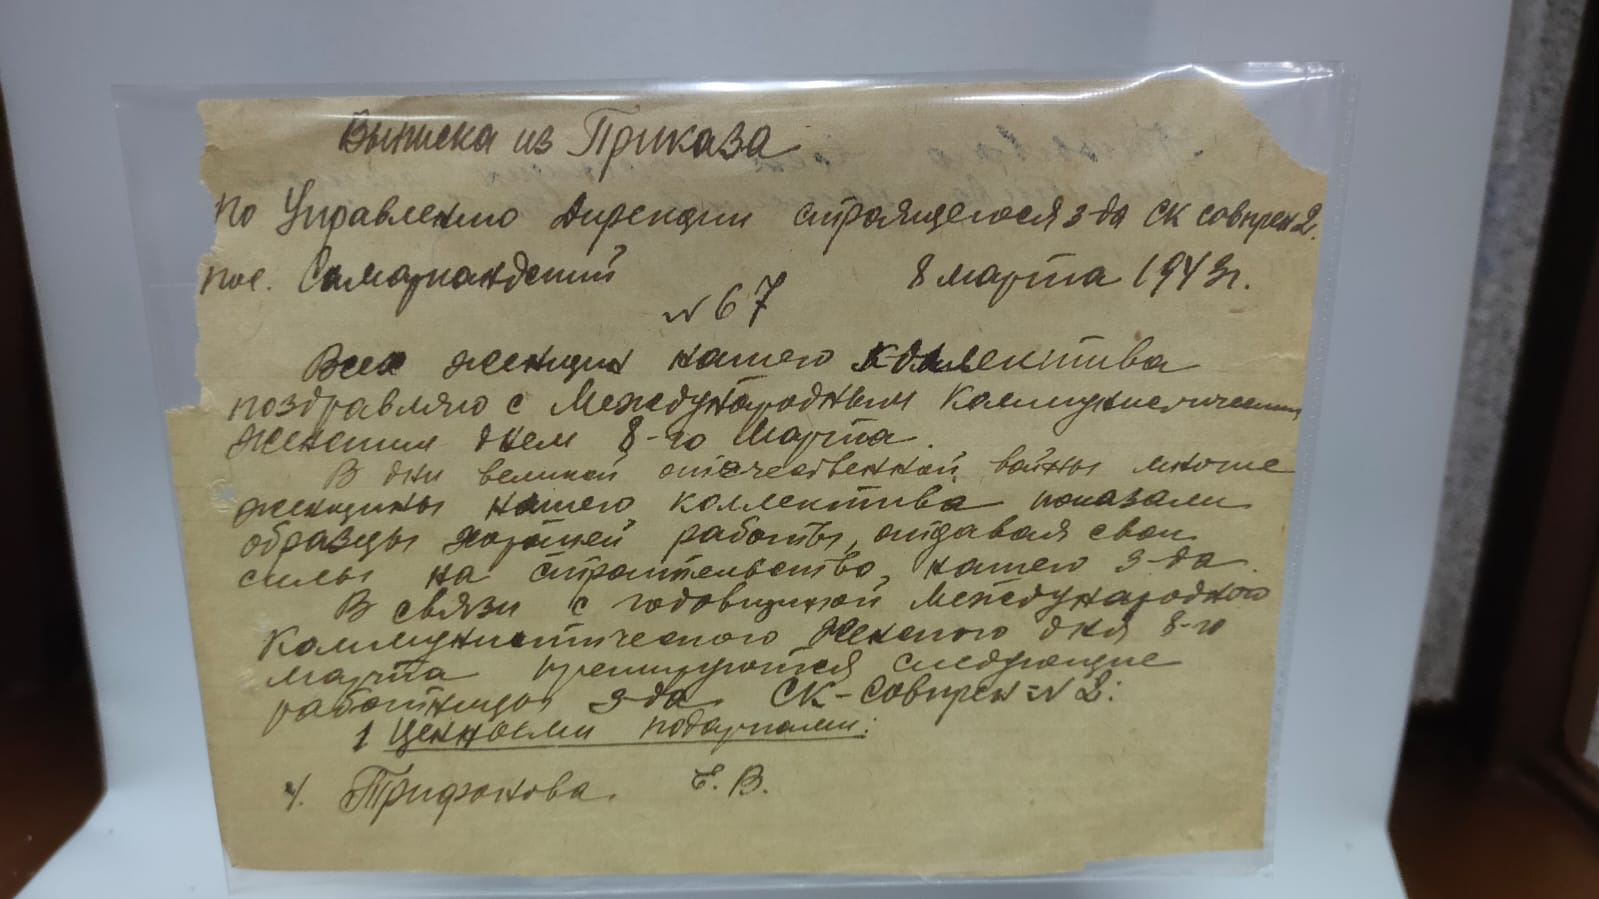 Выписка из Приказа
по Управлению Дирекции строящегося з-да СК совпрен 2.
пос. Самаркандский 8 марта 1943г.
№ 67
Всех женщин нашего коллектива
поздравляю с Международным Коммунистическим
женским днем 8-го Марта.
В дни великой отечественной войны многие
женщины нашего коллектива показали
образцы хорошей работы, отдавая свои
силы на строительство нашего з-да.
В связи с годовщиной Международного
Коммунистического Женского дня 8-го
марта премируются следующие
работницы з-да СК-Совпрен № 2:
1 Ценными подарками:
4. Трифонова Е. В.